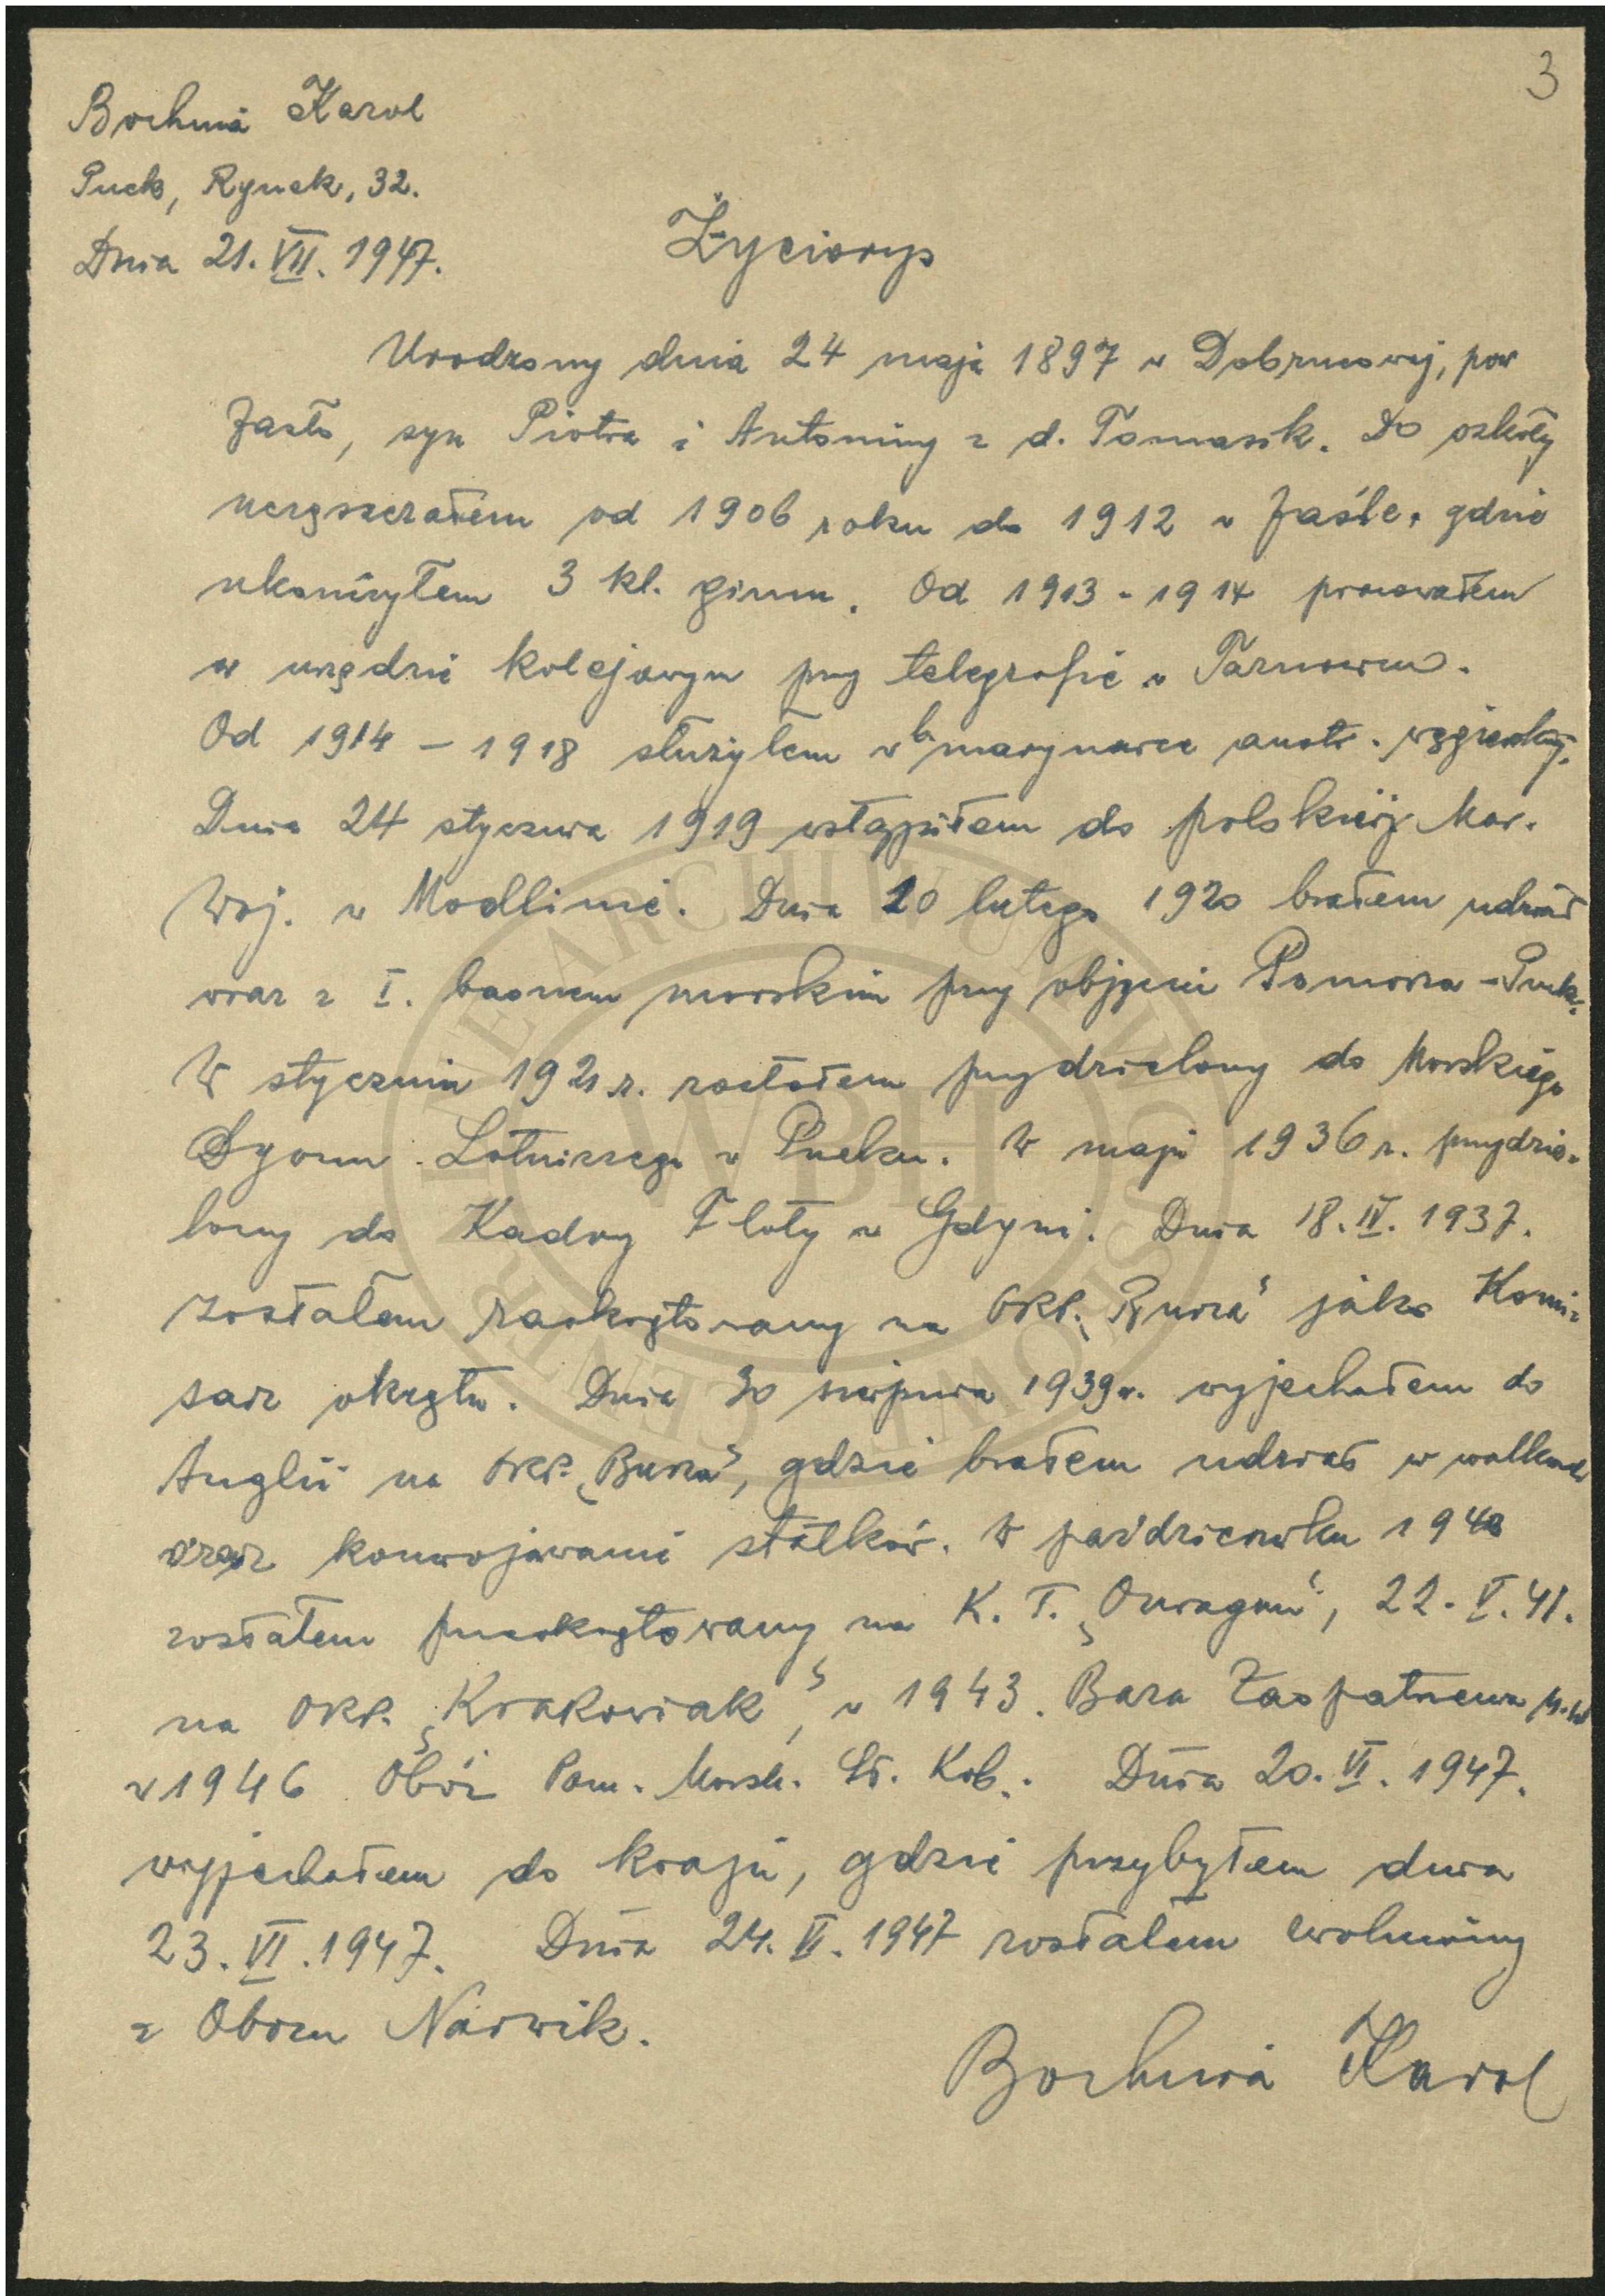 3
Bochnia Karol
Puck, Rynek, 32.
Dnia 21. VII. 1947.
Życiorys
Urodzony dnia 24 maja 1897 w Dobrucowej, pow
Jasło, syn Piotra i Antoniny z d. Tomasik. Do szkoły
uczęszczałem od 1906 roku do 1912 w Jaśle, gdzie
ukończyłem 3 kl. gimn. Od 1913 - 1914 pracowałem
w urzędzie kolejowym przy telegrafie w Tarnowie.
Od 1914 – 1918 służyłem w b. marynarce austr. węgierskiej.
Dnia 24 stycznia 1919 wstąpiłem do polskiej Mar.
Woj. w Modlinie. Dnia 10 lutego 1920 brałem udział
wraz z I. baonem morskim przy objęciu Pomorza - Puck.
W styczniu 1921 r. zostałem przydzielony do Morskiego
Dyonu Lotniczego w Pucku. W maju 1936 r. przydzie-
lony do Kadry Floty w Gdyni. Dnia 18. IV. 1937.
zostałem zaokrętowany na ORP. „Burza" jako Komi-
sarz okrętu. Dnia 30 sierpnia 1939 r. wyjechałem do
Anglii na ORP. „Burza", gdzie brałem udział w walkach
oraz konwojowanie statków. W październiku 1940
zostałem przeokrętowany na K. T. „Ouragan", 22. V. 41.
na ORP. „Krakowiak", w 1943. Baza Zaopatrzenia M.W
w 1946 Obóz Pom. Morsk. Sł. Kob. Dnia 20. VI. 1947.
wyjechałem do kraju, gdzie przybyłem dnia
23. VI. 1947. Dnia 24. VI. 1947 zostałem zwolniony
z Obozu Narwik.
Bochnia Karol
CENTRALNE ARCHIWUM WOJSKOWE
WBH